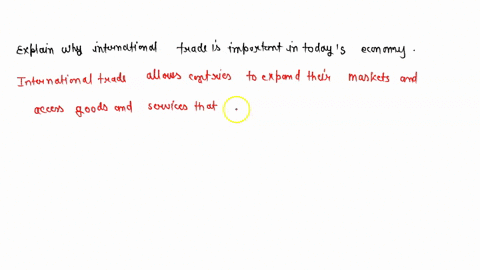 Explain why international trade is important in today's economy.
International trade allows cntries to expand their markets and
access goods and services that